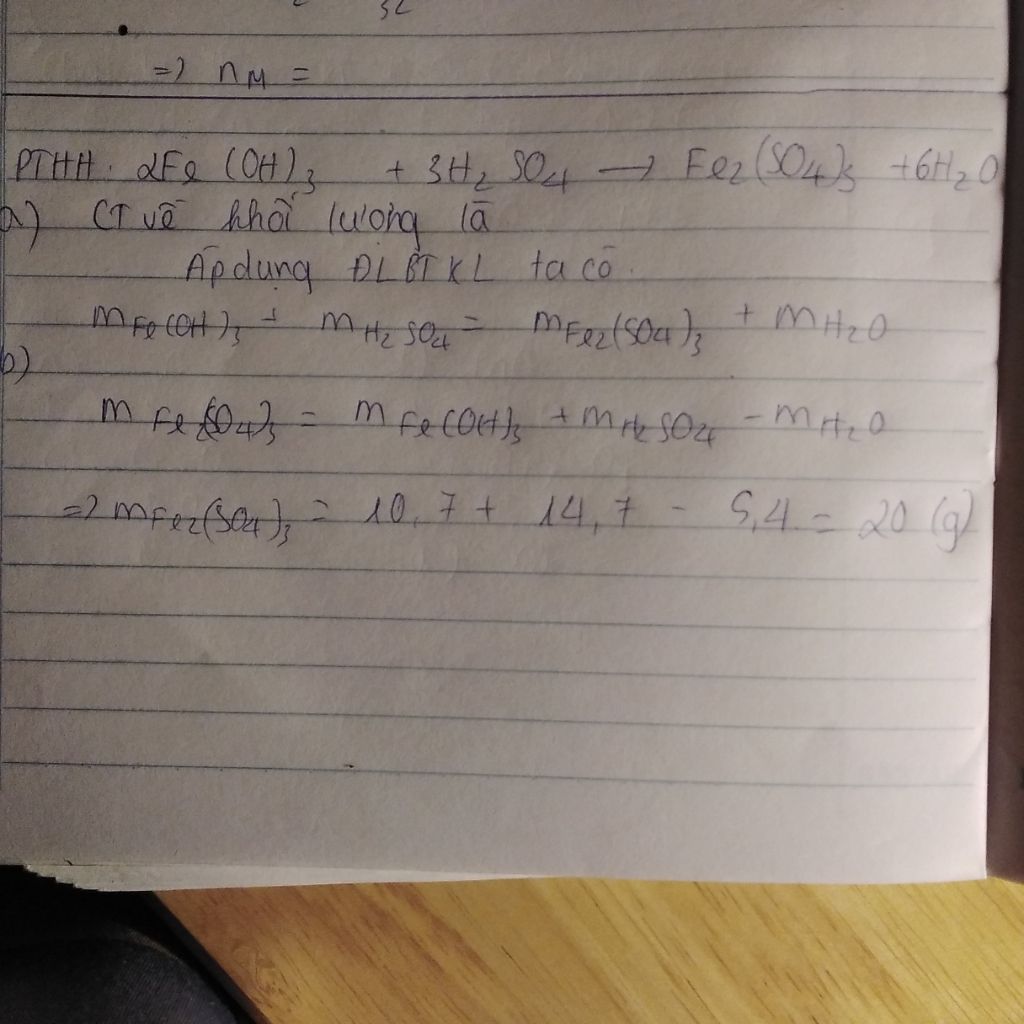 => nM =
PTHH: 2Fe (OH)3 + 3H2 SO4 → Fe2(SO4)3 +6H2O
a) CT về khối lượng là
Áp dụng ĐLBTKL ta có.
mFe(OH)3 + mH2SO4 = mFe2(SO4)3 + mH2O
b)
mFe2(SO4)3 = mFe(OH)3 + mH2SO4 - mH2O
=> mFe2(SO4)3 = 10,7 + 14,7 - 5,4 = 20 (g)